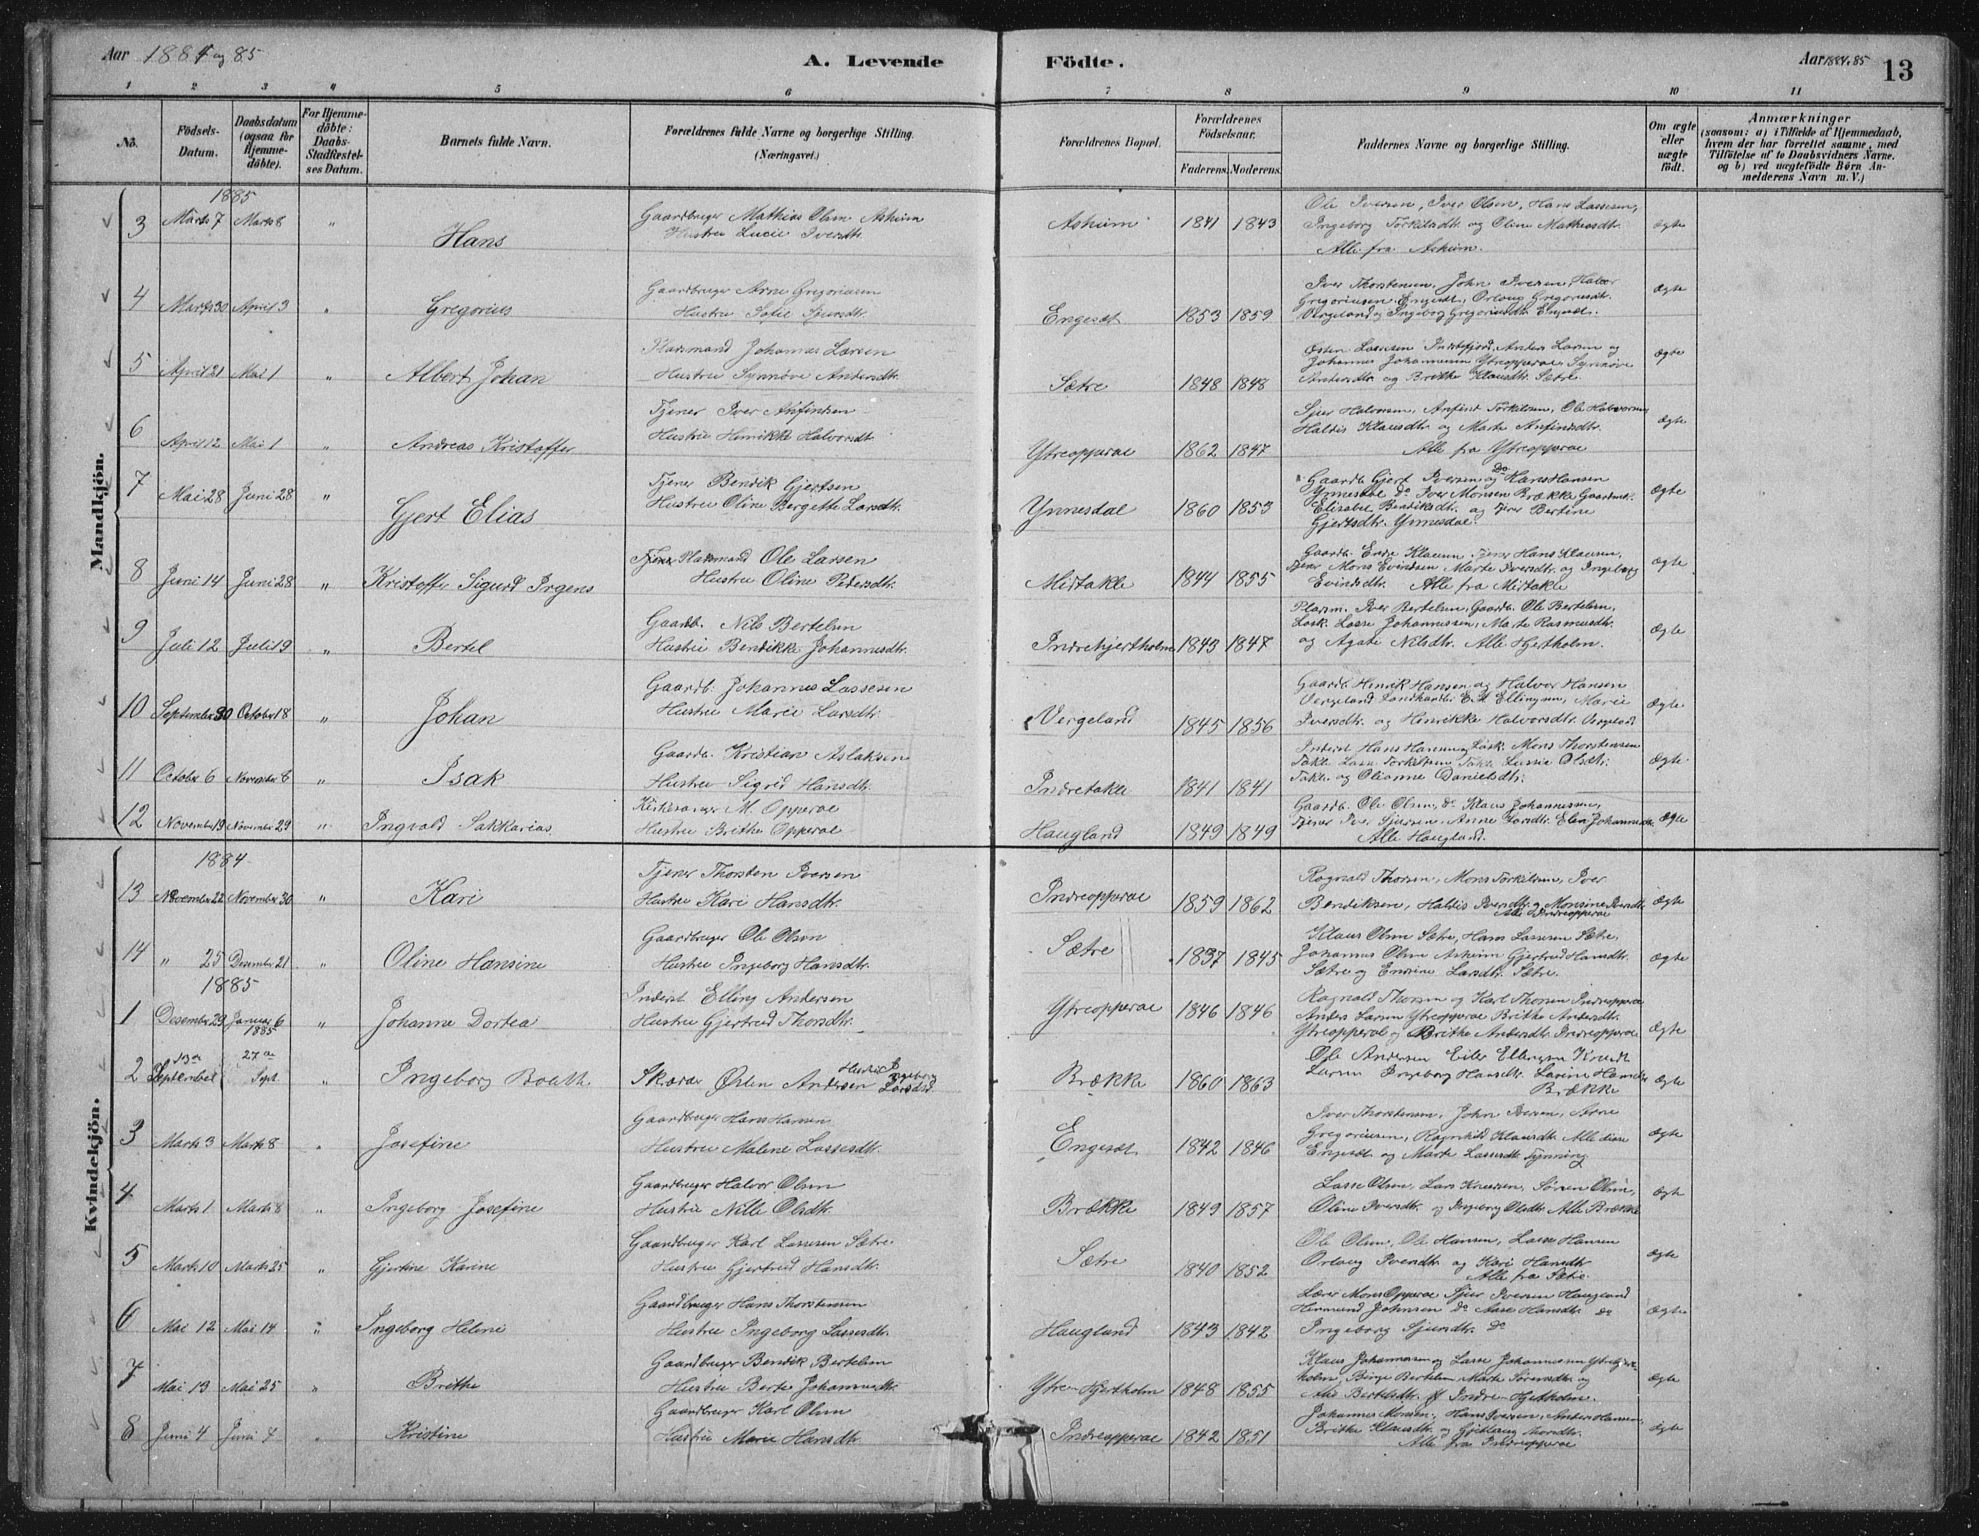 Aar 1884 og 85
A. Levende Födte.
Aar 1884, 85
13
1 2 3 4 5 6 7 8 9 10 11
No.
Födsels-Datum.
Daabsdatum (ogsaa for Hjemme-döbte).
For Hjemme-döbte: Daabs-Stadfæstel-ses Datum.
Barnets fulde Navn.
Forældrenes fulde Navne og borgerlige Stilling. (Næringsvei.)
Forældrenes Bopæl.
Forældrenes Födselsaar.
Faderens. Moderens.
Faddernes Navne og borgerlige Stilling.
Om ægte eller uægte födt.
Anmærkninger
(saasom: a) i Tilfælde af Hjemmedaab, hvem der har forrettet samme, med Tilföielse af to Daabsvidners Navne, og b) ved uægtefödte Börn An-melderens Navn m. V.)
Mandkjön.
1885
3 Marts 7 Marts 8 " Hans
Gaardbruger Mathias Olsen Askum
Hustru Lucie Iversdtr.
Askum 1841 1843
Ole Iversen, Iver Olsen, Hans Lassesen,
Ingeborg Torkilsdtr og Oline Mathiasdtr.
Alle fra Askum.
Ægte
4 Marts 30 April 3 " Gregorius
Gaardbruger Arne Gregoriusen
Hustru Sofie Sjursdtr.
Engesæt 1853 1859
Iver Thorstensen, John Iversen, Halvor
Gregoriusen Engesæt, Orlaug Gregoriusdtr.
Vergeland og Ingeborg Gregoriusdtr. Engesæt.
Ægte
5 April 21 Mai 1 " Albert Johan
Pladsmand Johannes Larsen
Hustru Synnöve Andersdtr.
Sætre 1848 1848
Östen Lassesen Indrefjord, Anders Larsen og
Johannes Johannesen Ytreopperae, Synnöve
Andersdtr og Brithe Klausdtr. Sætre.
Ægte
6 April 12 Mai 1 " Andreas Kristoffer
Tjener Iver Anfindsen
Hustru Henrikke Halvorsdtr.
Ytreopperae 1862 1847
Sjur Halvorsen, Anfind Torkilsen, Ole Halvorsen,
Haldis Klausdtr. og Marte Anfindsdtr.
Alle fra Ytreopperae
Ægte
7 Mai 28 Juni 28 " Gjert Elias
Tjener Bendik Gjertsen
Hustru Oline Bergette Larsdtr.
Ynnesdal 1860 1853
Gaardb. Gjert Iversen og Do Hans Hansen
Ynnesdal do Iver Monsen Brække Gaardmd.
Elisabet Bendiksdtr. og Tjener Bertine
Gjertsdtr. Ynnesdal.
Ægte
8 Juni 14 Juni 28 " Kristoffer Sigurd Irgens
Pladsmand Ole Larsen
Hustru Oline Petersdtr.
Mistakle 1844 1855
Gaardb. Endre Klausen, Tjener Hans Klausen,
Tjener Mons Evindsen Marte Iversdtr. og Ingeborg
Evindsdtr. Alle fra Mistakle
Ægte
9 Juli 12 Juli 19 " Bertel
Gaardb. Nils Bertelsen
Hustru Bendikke Johannesdtr.
Indrehjertholm 1843 1847
Pladsm. Iver Bertelsen, Gaardb. Ole Bertelsen,
Løsk. Lasse Johannessen, Marte Rasmusdtr.
og Agate Nilsdtr. Alle Hjertholm.
Ægte
10 September 30 October 18 " Johan
Gaardb. Johannes Lassesen
Hustru Marie Larsdtr.
Vergeland 1845 1856
Gaardb. Henrik Hansen og Halvor Hansen
Vergeland Landhandler E. A. Ellingsen, Marie
Iversdtr. og Henrikke Halvorsdtr. Vergeland
Ægte
11 October 6 November 6 " Isak
Gaardb. Kristian Aslaksen
Hustru Sigrid Hansdtr.
Indretakle 1841 1841
Inderst Hans Hansen og Løsk. Mons Thorstensen
Takle Lasse Torkilsen Takle Lussie Olsdtr.
Takle og Olianne Danielsdtr.
Ægte
12 November 19 November 29 " Ingvald Sakkarias
Kirkesanger M. Opperae
Hustru Brithe Opperae
Haugland 1849 1849
Gaardb. Ole Olsen, do Klaus Johannessen,
Tjener Iver Sjursen, Anne Larsdtr. Elen Johannesdtr.
Alle Haugland.
Ægte
Kvindekjön.
1884
13 November 22 November 30 " Kari
Tjener Thorsten Iversen
Hustru Kari Hansdtr.
Indreopperae 1859 1862
Ragnald Thorsen, Mons Torkilsen, Iver
Bendiksen, Haldis Iversdtr. og Monsine Iversdtr.
Alle Indreopperae
Ægte
14 " 25 Desember 21 " Oline Hansine
Gaardbruger Ole Olsen
Hustru Ingeborg Hansdtr.
Sætre 1837 1845
Klaus Olsen Sætre, Hans Lassesen Sætre,
Johannes Olsen Askum Gjertrud Hansdtr.
Sætre og Ensine Larsdtr. Sætre.
Ægte
1885
1 Desember 29 Januar 6 1885 " Johanne Dortea
Inderst Elling Andersen
Hustru Gjertrud Thorsdtr.
Ytreopperae 1846 1846
Ragnald Thorsen og Karl Thorsen Indreopperae
Anders Larsen Ytreopperae Brithe Andersdtr.
Ytreopperae og Brithe Andersdtr. Indreopperae
Ægte
2 13de September 27de Sept. " Ingeborg Boath
Skræder Östen Andersen Hustru Ingeborg Larsdtr.
Brække 1860 1863
Ole Andersen Eiler Ellingsen Knud
Larsen Ingeborg Hansdtr. Larine Hansdtr
Brække
Ægte
3 Marts 3 Marts 8 " Josefine
Gaardbruger Hans Hansen
Hustru Malene Lassesdtr.
Engesæt 1842 1846
Iver Thorstensen, John Iversen, Arne
Gregoriusen, Ragnhild Klausdtr. Alle disse
Engesæt og Marte Lassesdtr. Tynning
Ægte
4 Marts 1 Marts 8 " Ingeborg Josefine
Gaardbruger Halvor Olsen
Hustru Nille Olsdtr.
Brække 1849 1857
Lasse Olsen, Lars Knudsen, Sören Olsen,
Oline Iversdtr. og Ingeborg Olsdtr. Alle Brække
Ægte
5 Marts 10 Marts 25 " Gjertine Karine
Gaardbruger Karl Lassesen Sætre
Hustru Gjertrud Hansdtr.
Sætre 1840 1852
Ole Olsen, Ole Hansen, Lasse Hansen
Orlaug Iversdtr og Kari Hansdtr
Alle fra Sætre.
Ægte
6 Mai 12 Mai 14 " Ingeborg Helene
Gaardbruger Hans Thorstensen
Hustru Ingeborg Lassesdtr.
Haugland 1843 1842
Lærer Mons Opperae Sjur Iversen Haugland
Hermund Johnsen do Aase Hansdtr. do
Ingeborg Sjursdtr. do
Ægte
7 Mai 13 Mai 25 " Brithe
Gaardbruger Bendik Bertelsen
Hustru Berte Johannesdtr.
Ytre-Hjertholm 1848 1855
Klaus Johannesen og Lasse Johannessen Ytrehjert-
holm, Börge Bertelsen Marte Sörensdtr. og
Bertelsdtr. af Indre-Hjertholm.
Ægte
8 Juni 4 Juni 7 " Kristine
Gaardbruger Karl Olsen
Hustru Marie Hansdtr.
Indreopperae 1842 1851
Johannes Monsen, Hans Iversen, Anders Hansen,
Brithe Klausdtr. og Gjertrug Thorsdtr.
Alle fra Indreopperae
Ægte